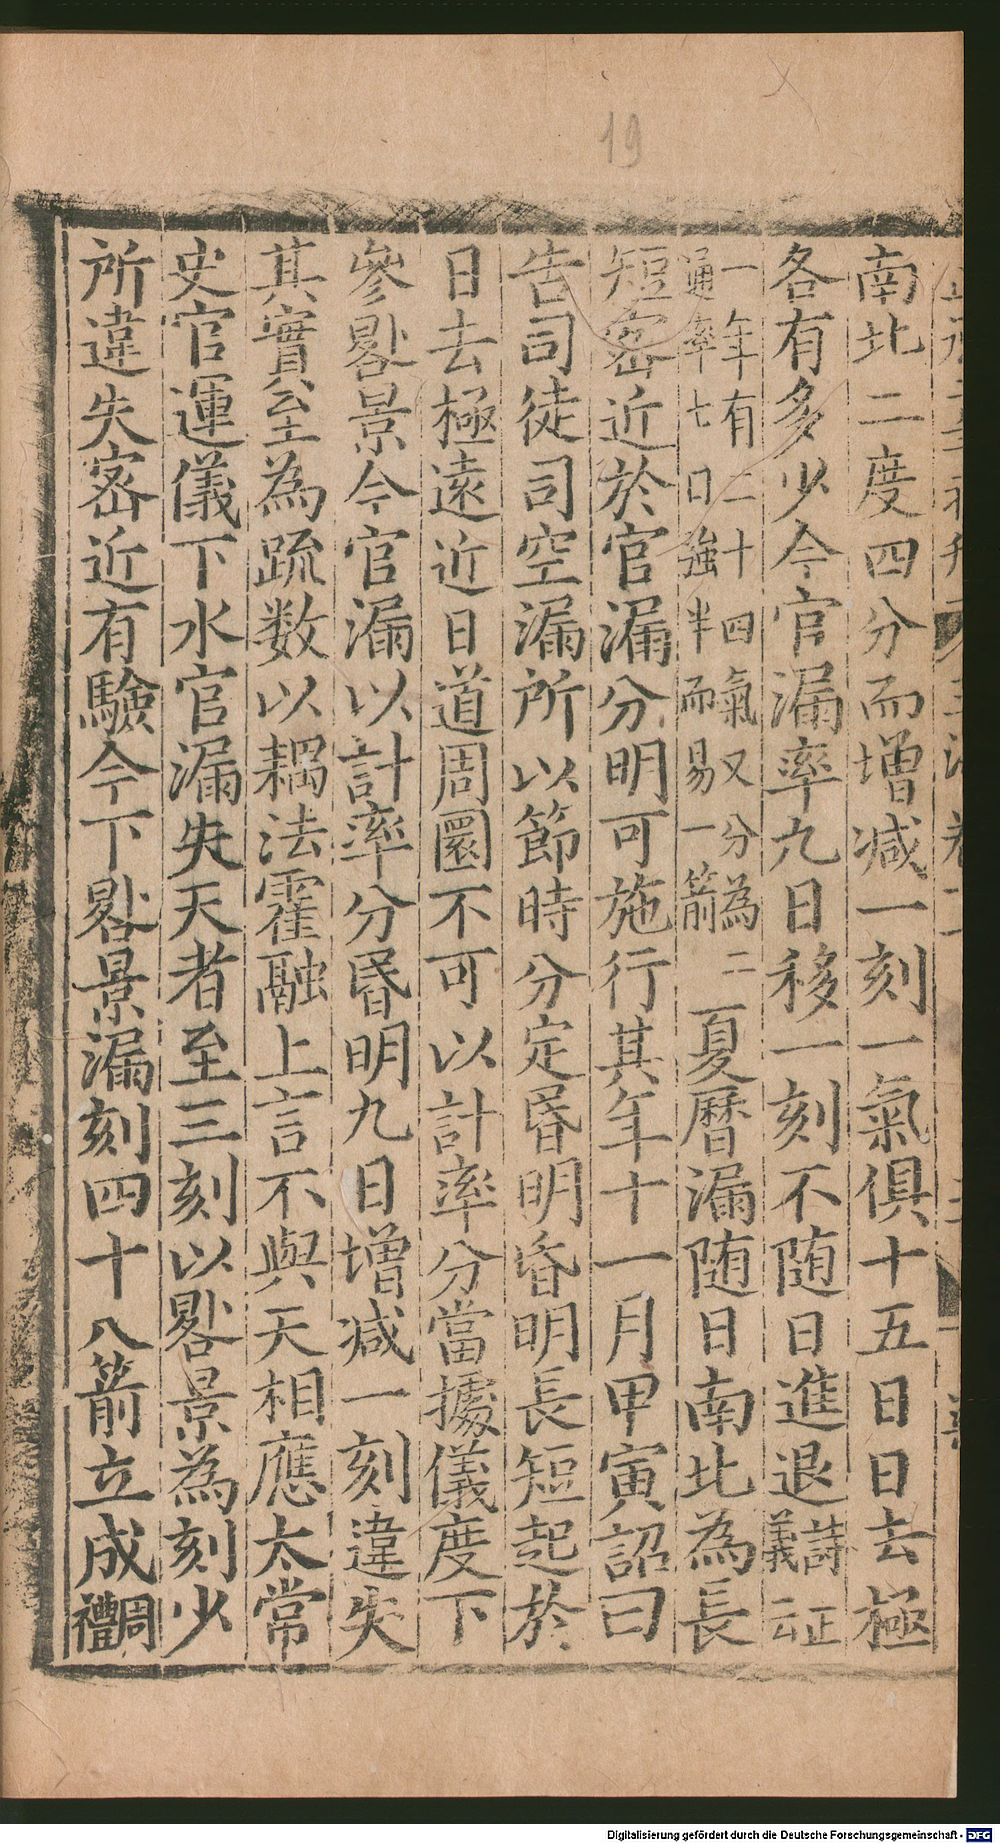 19
南北二度四分而增減一刻一氣俱十五日日去極
各有多少今官漏率九日移一刻不随日進退詩正義云
一年有二十四氣又分為二
通率七日強半而易一箭
夏曆漏随日南北為長
短密近於官漏分明可施行其年十一月甲寅詔曰
告司徒司空漏所以節時分定昬明昏明長短起於
日去極遠近日道周圜不可以計率分當據儀度下
參晷景今官漏以計率分昬明九日增減一刻違失
其實至為疏数以耦法霍融上言不與天相應太常
史官運儀下水官漏失天者至三刻以晷景為刻少
所違失密近有驗今下晷景漏刻四十八箭立成周禮
Digitalisierung gefördert durch die Deutsche Forschungsgemeinschaft - DFG